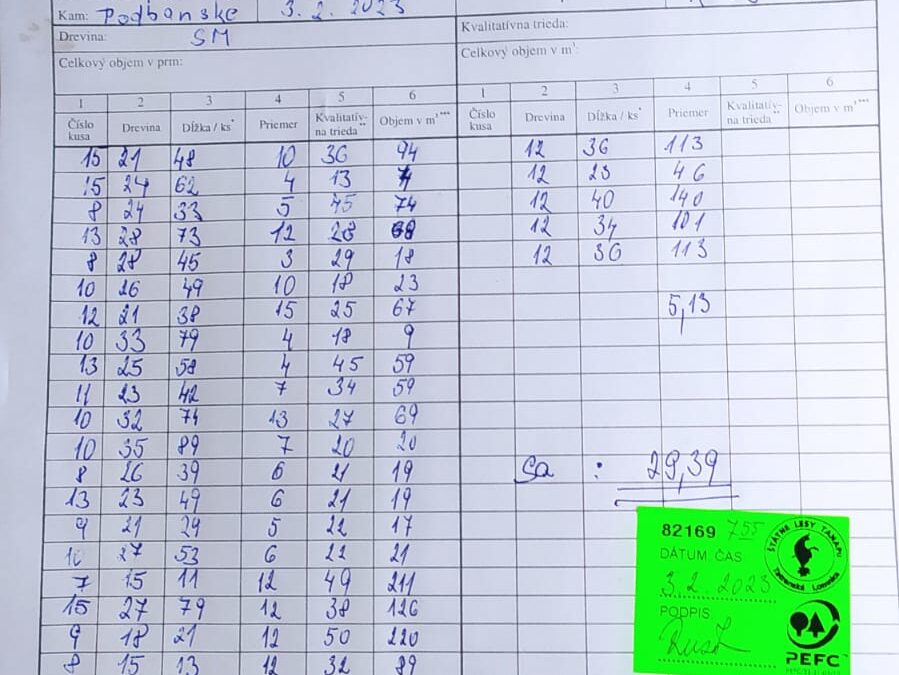 Kam: Podbanske 3. 2. 2023
Drevina: SM Kvalitatívna trieda:
Celkový objem v prm: Celkový objem v m³:
1 2 3 4 5 6 1 2 3 4 5 6
Číslo kusa Drevina Dĺžka / ks* Priemer Kvalitatív-na trieda** Objem v m³*** Číslo kusa Drevina Dĺžka / ks* Priemer Kvalitatív-na trieda** Objem v m³***
15 21 48 10 36 94 12 36 113
15 24 62 4 13 4 12 23 46
8 24 33 5 45 74 12 40 140
13 28 73 12 28 68 12 34 101
8 28 45 3 29 18 12 36 113
10 26 49 10 18 23
12 21 38 15 25 67 5,13
10 33 79 4 18 9
13 25 58 4 45 59
11 23 42 7 34 59
10 32 74 13 27 69
10 35 89 7 20 20
8 26 39 6 21 19 Sa : 29,39
13 23 49 6 21 19
9 21 29 5 22 17
10 27 53 6 22 21
7 15 11 12 49 211
15 27 79 12 38 126
9 18 21 12 50 220
8 15 13 12 32 89
82169 755
DÁTUM, ČAS
3.2.2023
PODPIS
ŠTÁTNE LESY TANAPU
Tatranská Lomnica
PEFC